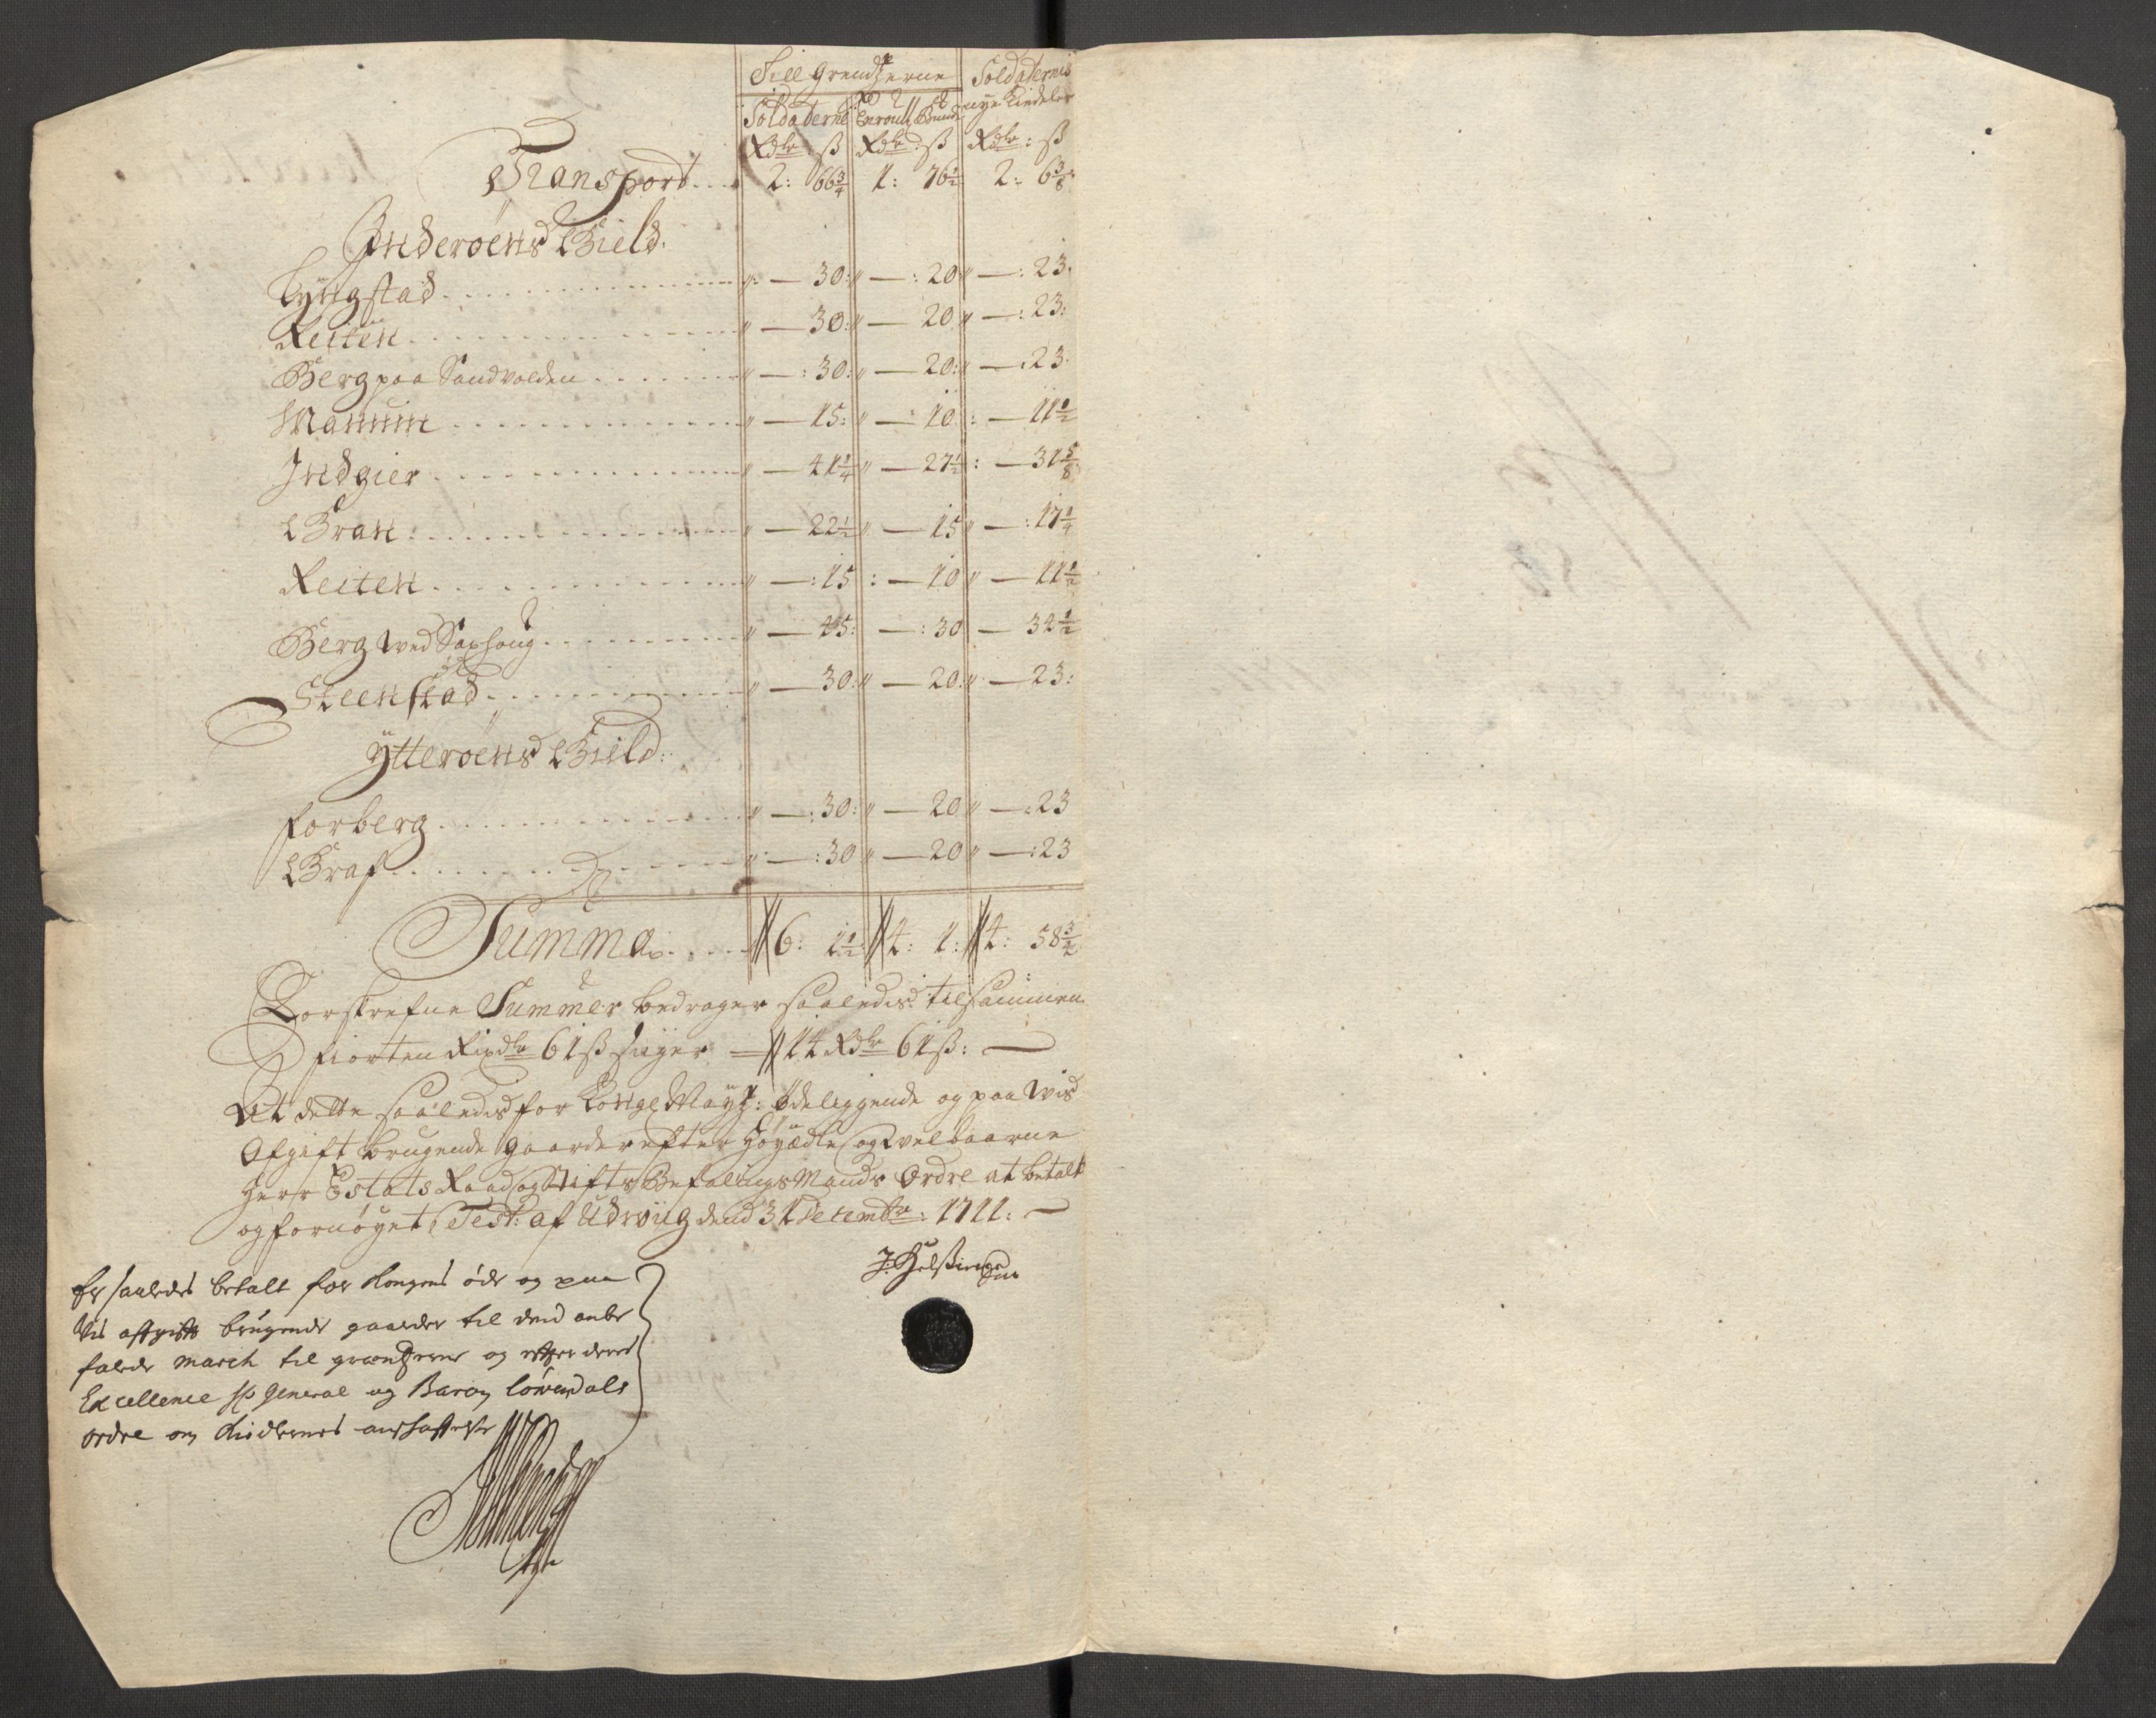 Till Grendserne Soldaternis
Soldaterne nye Kiedeler
Rdlr: ß Rdlr: ß Rdlr: ß
Transport 2: 66 3/4 1: 76 1/2 2: 6 3/8
Inderøens Gield:
Lyngstad " — 30: " — : 20 " — : 23.
Reiten " — 30: " — 20 " — : 23:
Berg paa Sandvolden " — : 30: " — 20: " — : 23.
Mamim " — 15: " — : 10 : — 11 1/2
Indgier " — 41 1/4 " — 27 1/2 : — 31 5/8
Gran: " — 22 1/2 " — 15 " — : 17 1/4
Reiten " — : 15 : — 10 " — 11 1/2
Berg ved Saxhoug " — 45: — : 30 — 34 1/2
Steenstad " — 30: " — 20: " — 23:
Ytterøens Gield:
Forberg " — : 30: " — 20 " — : 23
Graf " — : 30 " — 20 " — : 23
Summa 6: 1 1/2 4: 1: 4: 58 3/4
Forskrefne Summer bedrager saaledis tilsammen
fiorten Rixdlr 61 ß siger — 14 Rdlr 61 ß: —
At dette saaledis for Kongl Mayt: ødeliggende og paa Wis
Afgift brugende gaarder efter Høyædle og Welbaarne
Herr Estats Raad og Stifts Befalings Mands Ordre at betalt
og fornøyet, Test: af Udwiig dend 31 Decembr: 1711: —
Er saaledes betalt for Kongens øde og paa
Vis afgift brugende gaarder til dend anbe
falede march til grændserne og efter deres
Excellence Hr General og Baron Løvendals
ordre om Kiedlernes anskaffelse